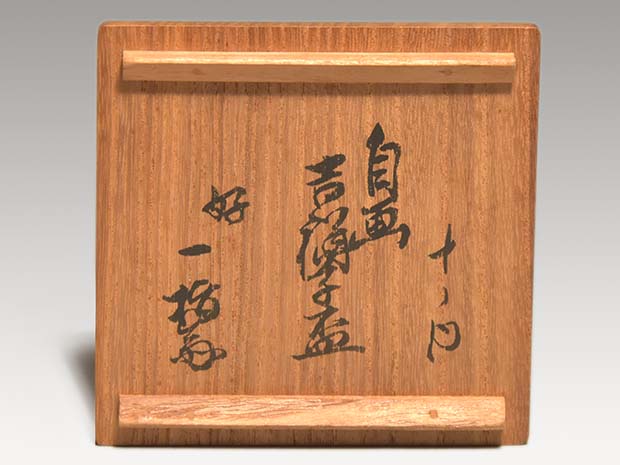 十ノ内
自画
吉 子盃
好
一指斎